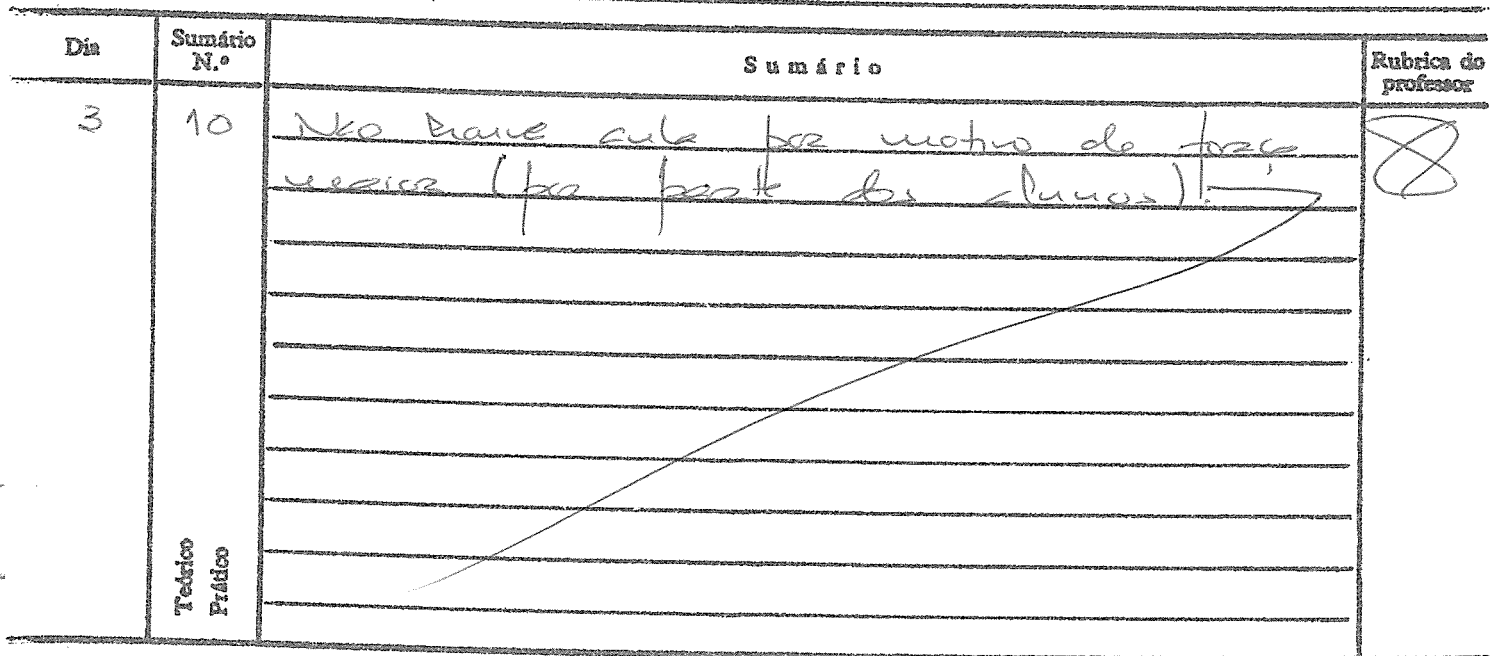 Dia
Sumário N.º
Sumário
Rubrica do professor
3
10
Não houve aula por motivo de força
maior (por parte dos alunos)!
Teórico
Prático